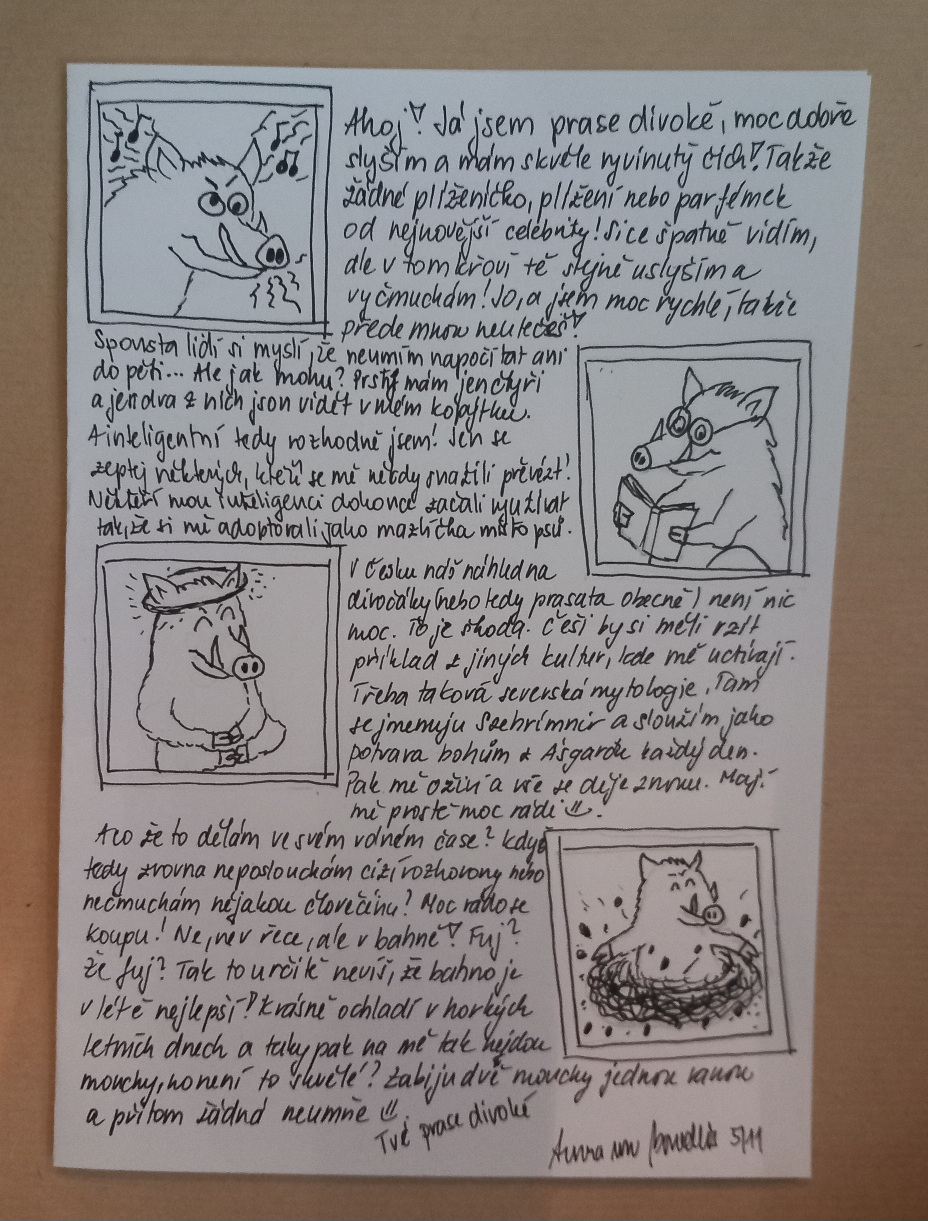 Ahoj! Já jsem prase divoké, moc dobře
slyším a mám skvěle vyvinutý čich! Takže
žádné plíženíčko, plížení nebo parfémek
od nejnovější celebrity! Sice špatně vidím,
ale v tom křoví tě stejně uslyším a
vyčmuchám! Jo, a jsem moc rychlé, takže
přede mnou neutečeš!
Spousta lidí si myslí, že neumím napočítat ani
do pěti... Ale jak mohu? Prstů mám jen čtyři
a jen dva z nich jsou vidět v mém kopýtku.
A inteligentní tedy rozhodně jsem! Jen se
zeptej některých, kteří se mě někdy snažili převézt!
Někteří mou inteligenci dokonce začali využívat
tak, že si mě adoptovali jako mazlíčka místo psů.
V Česku náš náhled na
divočáky (nebo tedy prasata obecně) není nic
moc. To je škoda. Češi by si měli vzít
příklad z jiných kultur, kde mě uctívají.
Třeba taková severská mytologie. Tam
se jmenuju Szehrímnir a sloužím jako
potrava bohům z Ásgardu každý den.
Pak mě oživí a vše se děje znovu. Mají
mě prostě moc rádi
A co že to dělám ve svém volném čase? Když
tedy zrovna neposlouchám cizí rozhovory nebo
nečmuchám nějakou člověčinu? Moc rádo se
koupu! Ne, ne v řece, ale v bahně! Fuj?
Že fuj? Tak to určitě nevíš, že bahno je
v létě nejlepší! Krásně ochladí v horkých
letních dnech a taky pak na mě tak nejdou
mouchy, no není to skvělé? Zabiju dvě mouchy jednou ranou
a přitom žádná neumře
Tvé prase divoké
Anna 5/11